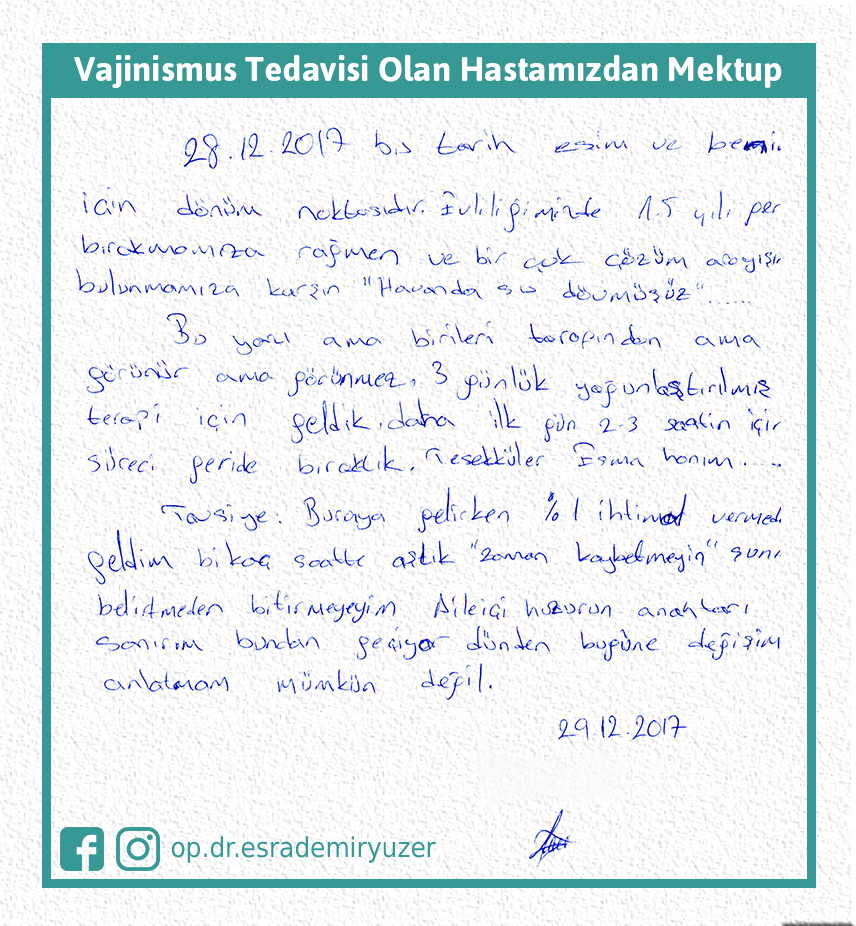 Vajinismus Tedavisi Olan Hastamızdan Mektup
28.12.2017 bu tarih eşim ve benim
için dönüm noktasıdır. Evliliğimizde 1.5 yılı geri
bırakmamıza rağmen ve bir çok çözüm arayışı
bulunmamıza karşın "Havanda su dövmüşüz"......
Bu yarıl ama birileri tarafından ama
görünür ama görünmez, 3 günlük yoğunlaştırılmış
terapi için geldik, daha ilk gün 2-3 saatin içir
süreci geride bıraktık. Teşekküler Esma hanım.....
Tavsiye: Buraya gelirken %1 ihtimal vermed
geldim bi kaç saatte aştık "zaman kaybetmeyin" şunu
belirtmeden bitirmeyeyim Aileiçi huzurun anahtarı
sanırım bundan geçiyor dünden bugüne değişim
anlatmam mümkün değil.
29.12.2017
op.dr.esrademiryuzer